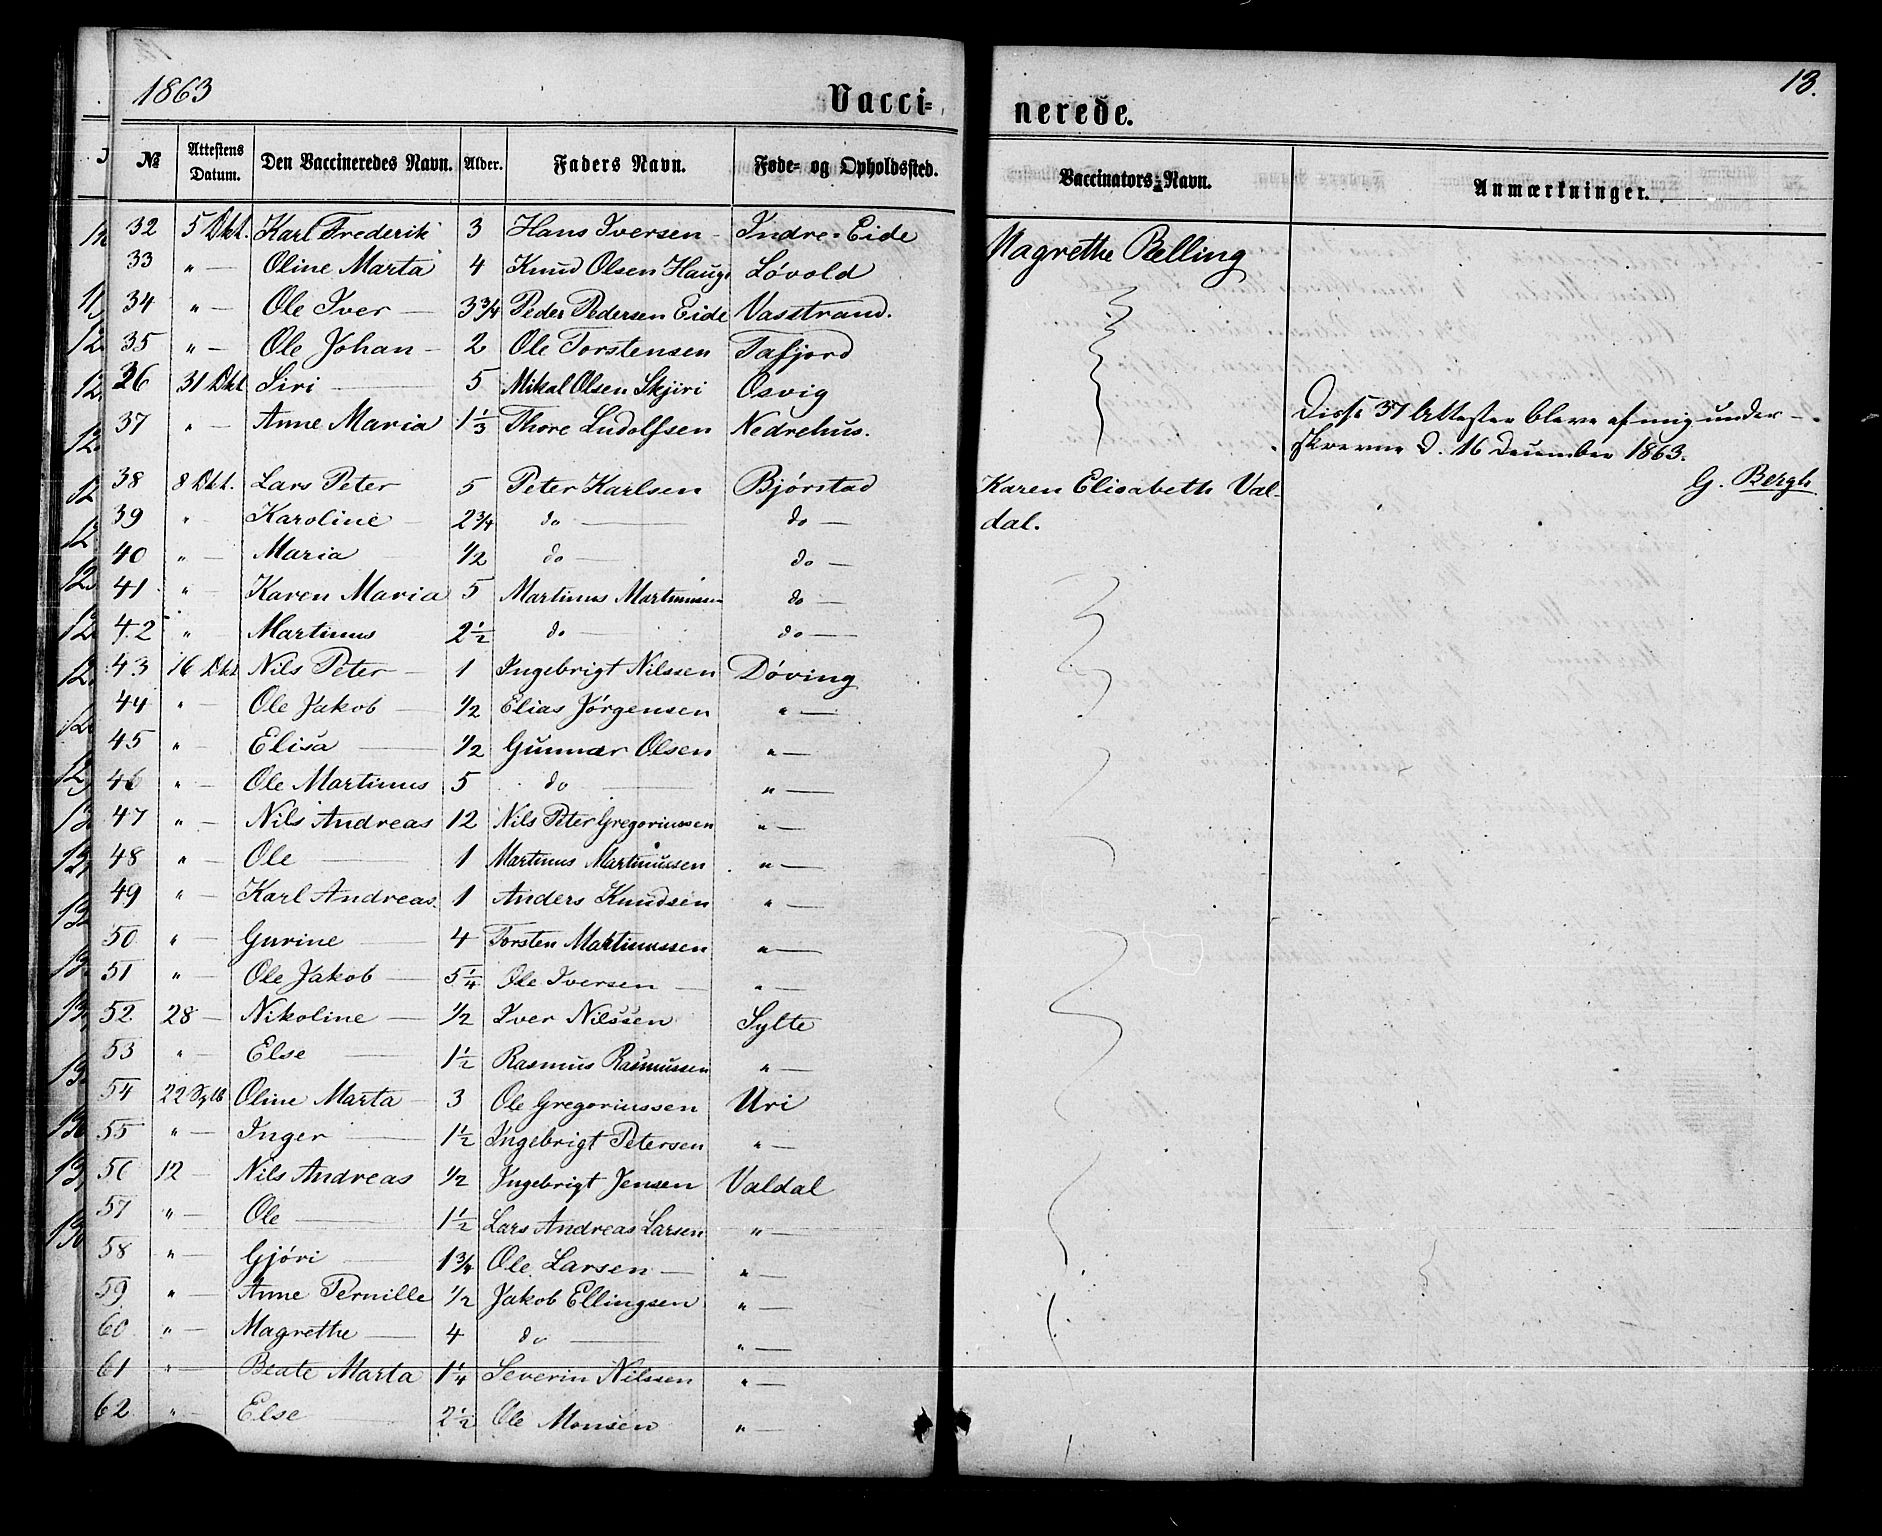 1863
Vacci-
nerede.
13.
No
Attestens Datum.
Den Vaccineredes Navn.
Alder.
Faders Navn.
Føde- og Opholdssted.
Vaccinators-Navn.
Anmærkninger.
32 5 Okt. Karl Frederik 3 Hans Iversen - Indre-Eide Magrethe Relling
33 " — Oline Marta 4 Knud Olsen Haugs Løvold
34 " — Ole Iver — 3 3/4 Peder Pedersen Eide Vasstrand.
35 " — Ole Johan - 2 Ole Torstensen Tafjord
36 31 Okt Siri — 5 Mikal Olsen Skjiri Osvig
37 " — Anne Maria 1 1/3 Thore Ludolfsen Nedrehus.
Disse 37 Attester bleve af mig under-
skrevne d. 16 December 1863.
G. Bergh
38 8 Okt. Lars Peter 5 Peter Karlsen Bjørstad Karen Elisabeth Val-
39 " Karoline 2 3/4 do — do — dal.
40 " — Maria 1/2 do — do —
41 " Karen Maria 5 Martinus Martinussen do —
42 " Martinus 2 1/2 do — do —
43 16 Okt Nils Peter — 1 Ingebrigt Nilssen Døving
44 " — Ole Jakob — 1/2 Elias Jørgensen " —
45 " — Elisa — 1/2 Gunnar Olsen " —
46 " — Ole Martinus 5 do — " —
47 " — Nils Andreas 12 Nils Peter Gregoriussen " —
48 " — Ole — 1 Martinus Martinussen " —
49 " — Karl Andreas. 1 Anders Knudsen " —
50 " — Gurine — 4 Torsten Martinussen " —
51 " — Ole Jakob — 5 1/4 Ole Iversen — " —
52 28 — Nikoline — 1/2 Iver Nilssen Sylte
53 " — Else — 1 1/2 Rasmus Rasmussen " —
54 22 Oline Marta - 3 Ole Gregoriussen Uri
55 " — Inger — 1 1/2 Ingebrigt Petersen " —
56 12 — Nils Andreas 1/2 Ingebrigt Jensen Valdal
57 " — Ole — 1 1/2 Lars Andreas Larsen " —
58 " — Gjøri — 1 3/4 Ole Larsen — " —
59 " — Anne Pernille 1/2 Jakob Ellingsen " —
60 " — Magrethe — 4 do — " —
61 " — Beate Marta 1 1/4 Severin Nilssen " —
62 " — Else — 2 1/2 Ole Monsen " —